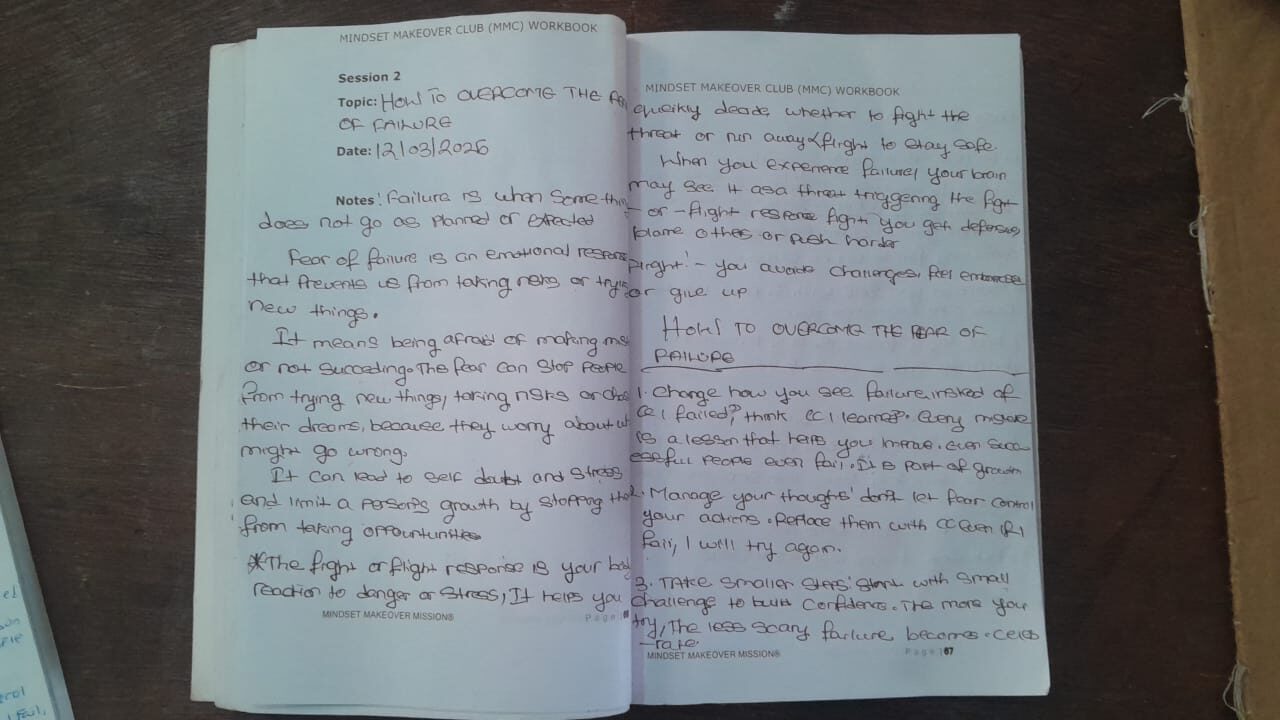 MINDSET MAKEOVER CLUB (MMC) WORKBOOK
Session 2
Topic: HOW TO OVERCOME THE
OF FAILURE
Date: 12/03/2026
Notes: Failure is when Somethin
does not go as planned or expected
Fear of failure is an emotional respons
that Prevents us from taking risks or tryin
new things.
It means being afraid of making mis
or not succeeding. The fear can stop People
from trying new things, taking risks or chas
their dreams, because they worry about w
might go wrong.
It can lead to self doubt and stress
and limit a person's growth by stopping the
from taking opportunities
*The fight or flight response is your body
reaction to danger or stress, It helps you
MINDSET MAKEOVER MISSION®
Page |
MINDSET MAKEOVER CLUB (MMC) WORKBOOK
quickly decide whether to fight the
threat or run away flight to stay safe.
When you experience failure, your brain
may see it as a threat triggering the fight
- or - flight response fight you get defensive
blame others or push harder
Flight: - you avoid challenges, feel
or give up
HOW TO OVERCOME THE FEAR OF
FAILURE
1. Change how you see failure, insted of
CC I failed?, think CC I learned?. Every mistake
is a lesson that helps you improve. Even succ
essful People even fail. It is part of growth
2. Manage your thoughts' don't let fear control
your actions. Replace them with CC Even if I
fail, I will try again.
3. TAke smaller steps' Start with small
challenge to build confidence. The more you
try, The less scary failure becomes. Celeb
-rate.
MINDSET MAKEOVER MISSION®
Page | 67